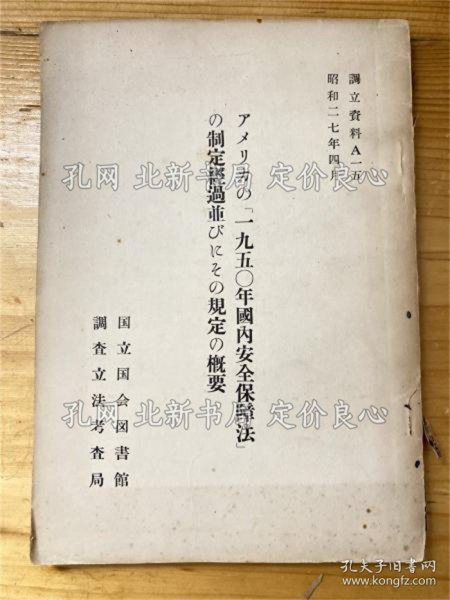 調立資料A一五
昭和二七年四月
アメリカの「一九五〇年國內安全保障法」
の制定經過並びにその規定の概要
国立国会図書館
調査立法考査局
孔网 北新书局 定价良心
孔网 北新书局 定价良心
孔网 北新书局 定价良心
孔夫子旧书网
www.kongfz.com